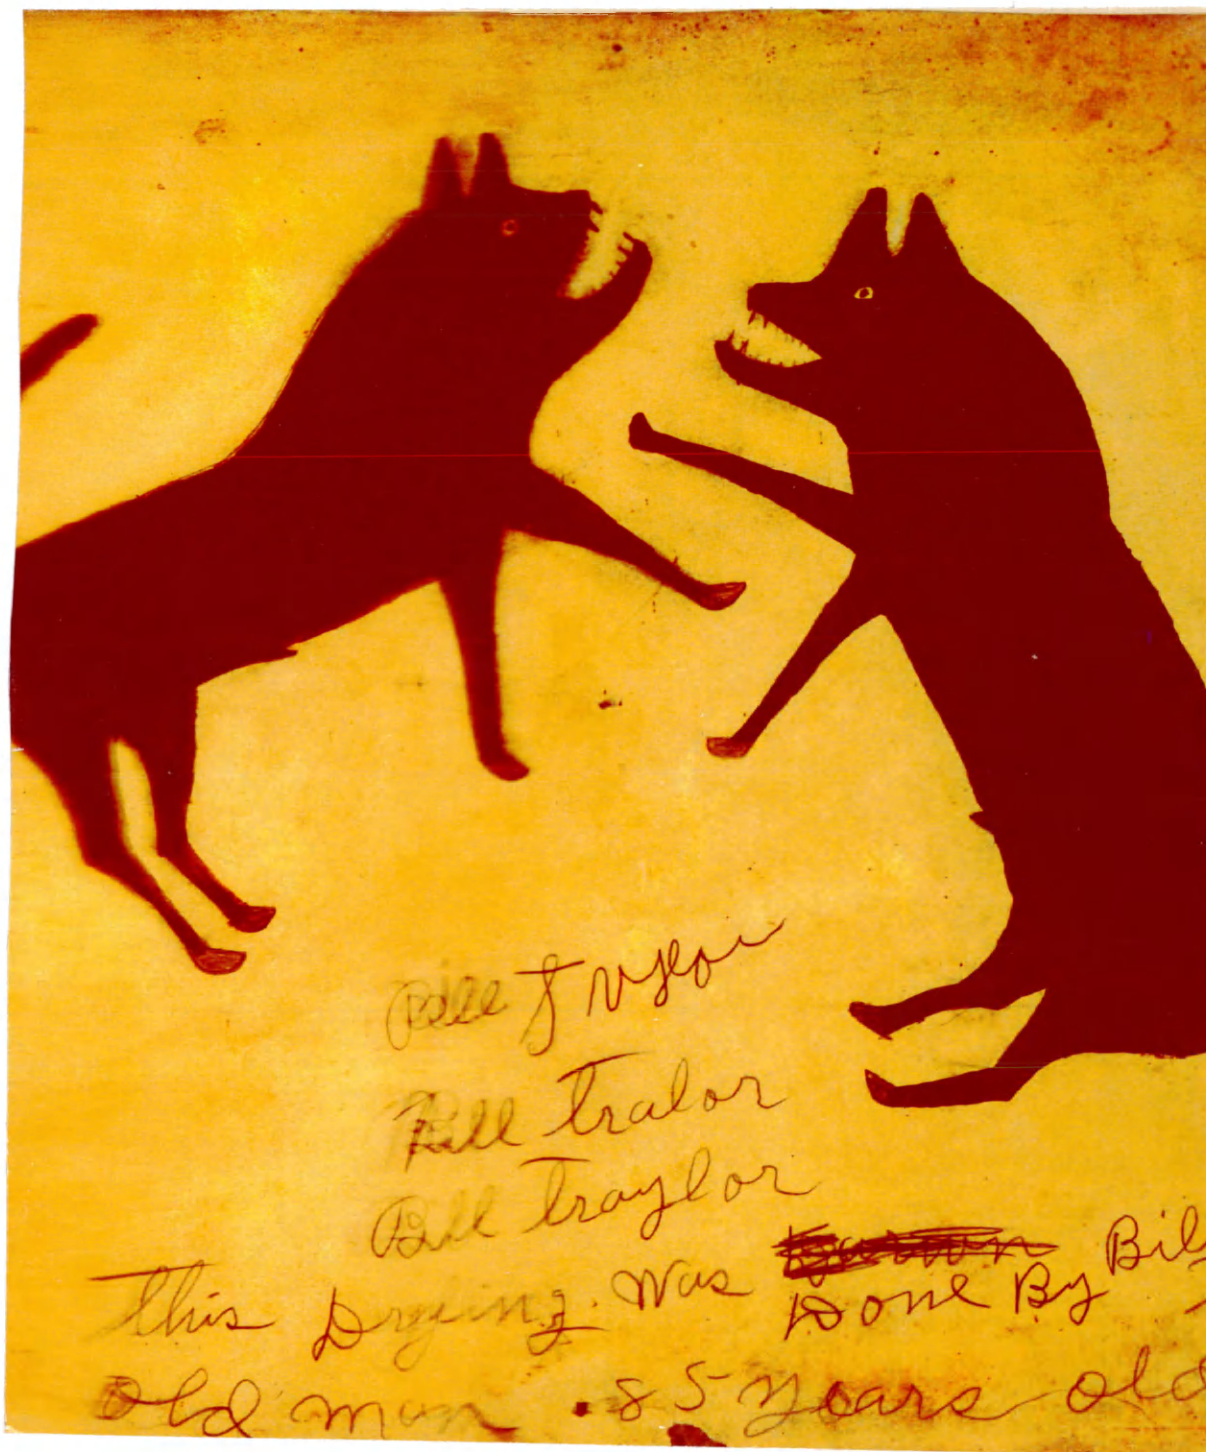 Bill Trylor
Bill Tralor
Bill Traylor
This Drying. Was Done By Bil
old man . 85 years old